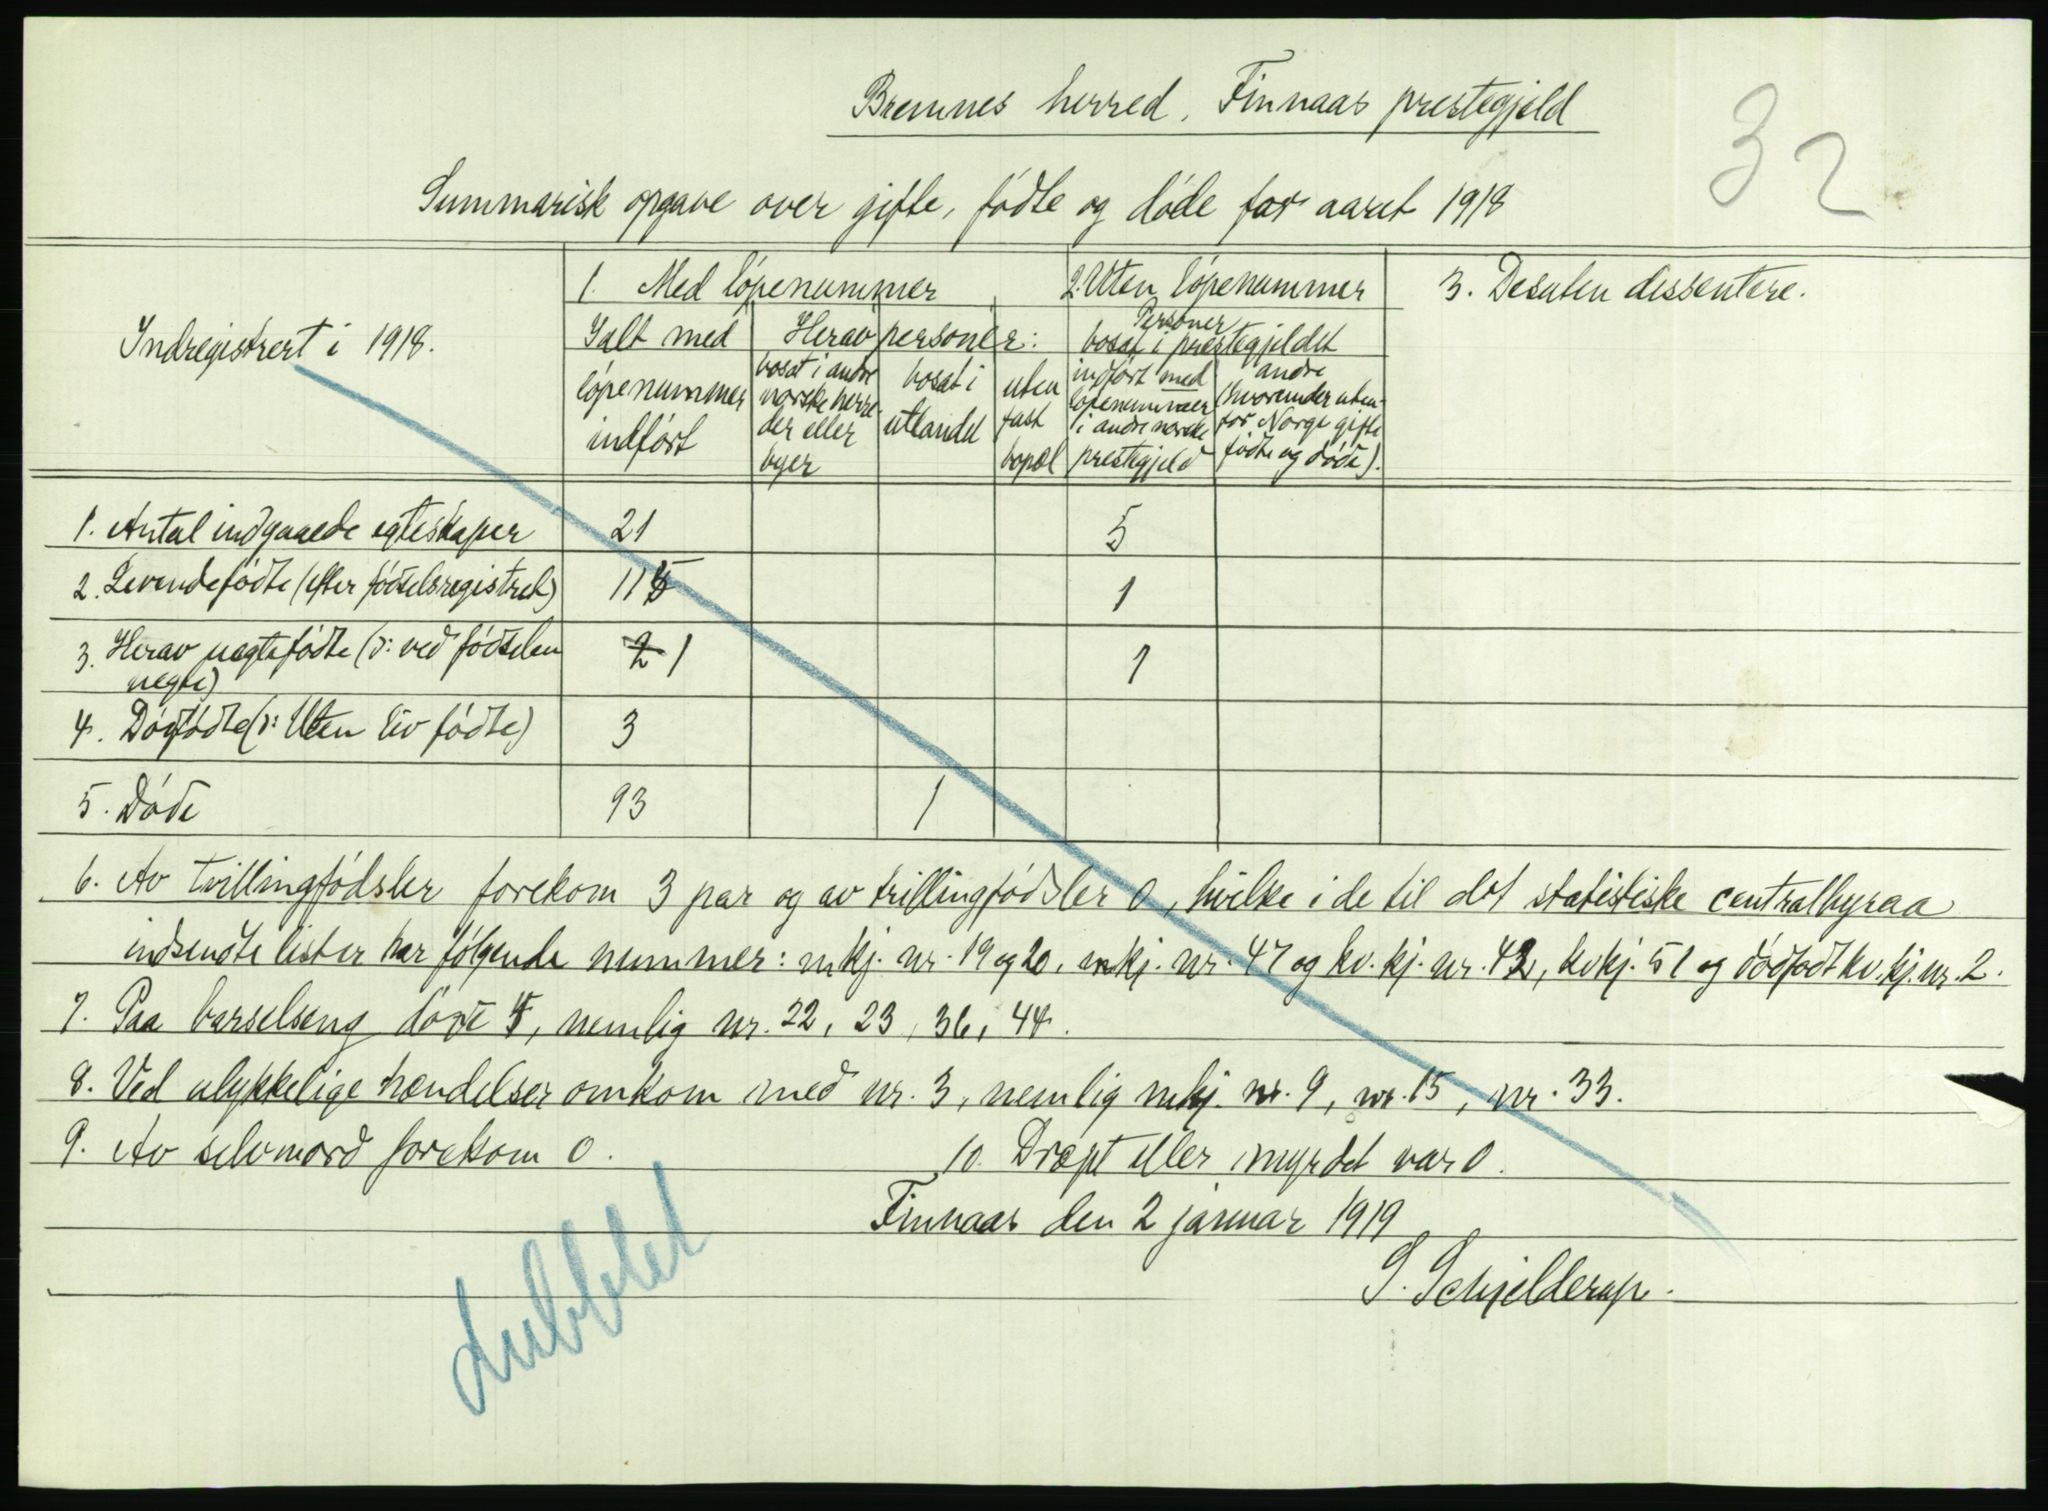 Bremnes herred, Finnaas prestegjeld
32
Summarisk opgave over gifte, fødte og døde for aaret 1918
Indregistrert i 1918.
1. Med løpenummer
2. Uten løpenummer
3. Desuten dissentere.
Ialt med løpenummer indført
Herav personer:
bosat i andre norske herreder eller byer
bosat i utlandet
uten fast bopæl
Personer bosat i prestegjeldet
indført med løpenummer i andre norske prestegjeld
andre (herunder utenfor Norge gifte fødte og døde).
1. Antal indgaaede egteskaper 21 5
2. Levendefødte (efter fødselsregistret) 115 1
3. Herav uegtefødte (ɔ: ved fødselen uegte) 2 1 1
4. Dødfødte (ɔ: Uten liv fødte) 3
5. Døde 93 1
6. Av tvillingfødsler forekom 3 par og av trillingfødsler 0, hvilke i de til det statistiske centralbyraa
indsendte lister har følgende nummer: mkj. nr. 19 og 20, mkj. nr. 47 og kv. kj. nr. 42, kvkj. 51 og dødfødt kv. kj. nr. 2.
7. Paa barselseng døde, nemlig nr. 22, 23, 36, 44.
8. Ved ulykkelige hændelser omkom med nr. 3, nemlig mkj. nr. 9, nr. 15, nr. 33.
9. Av selvmord forekom 0. 10. Dræpt eller myrdet var 0.
Finnaas den 2 januar 1919
S. Schjelderup.
dubblet